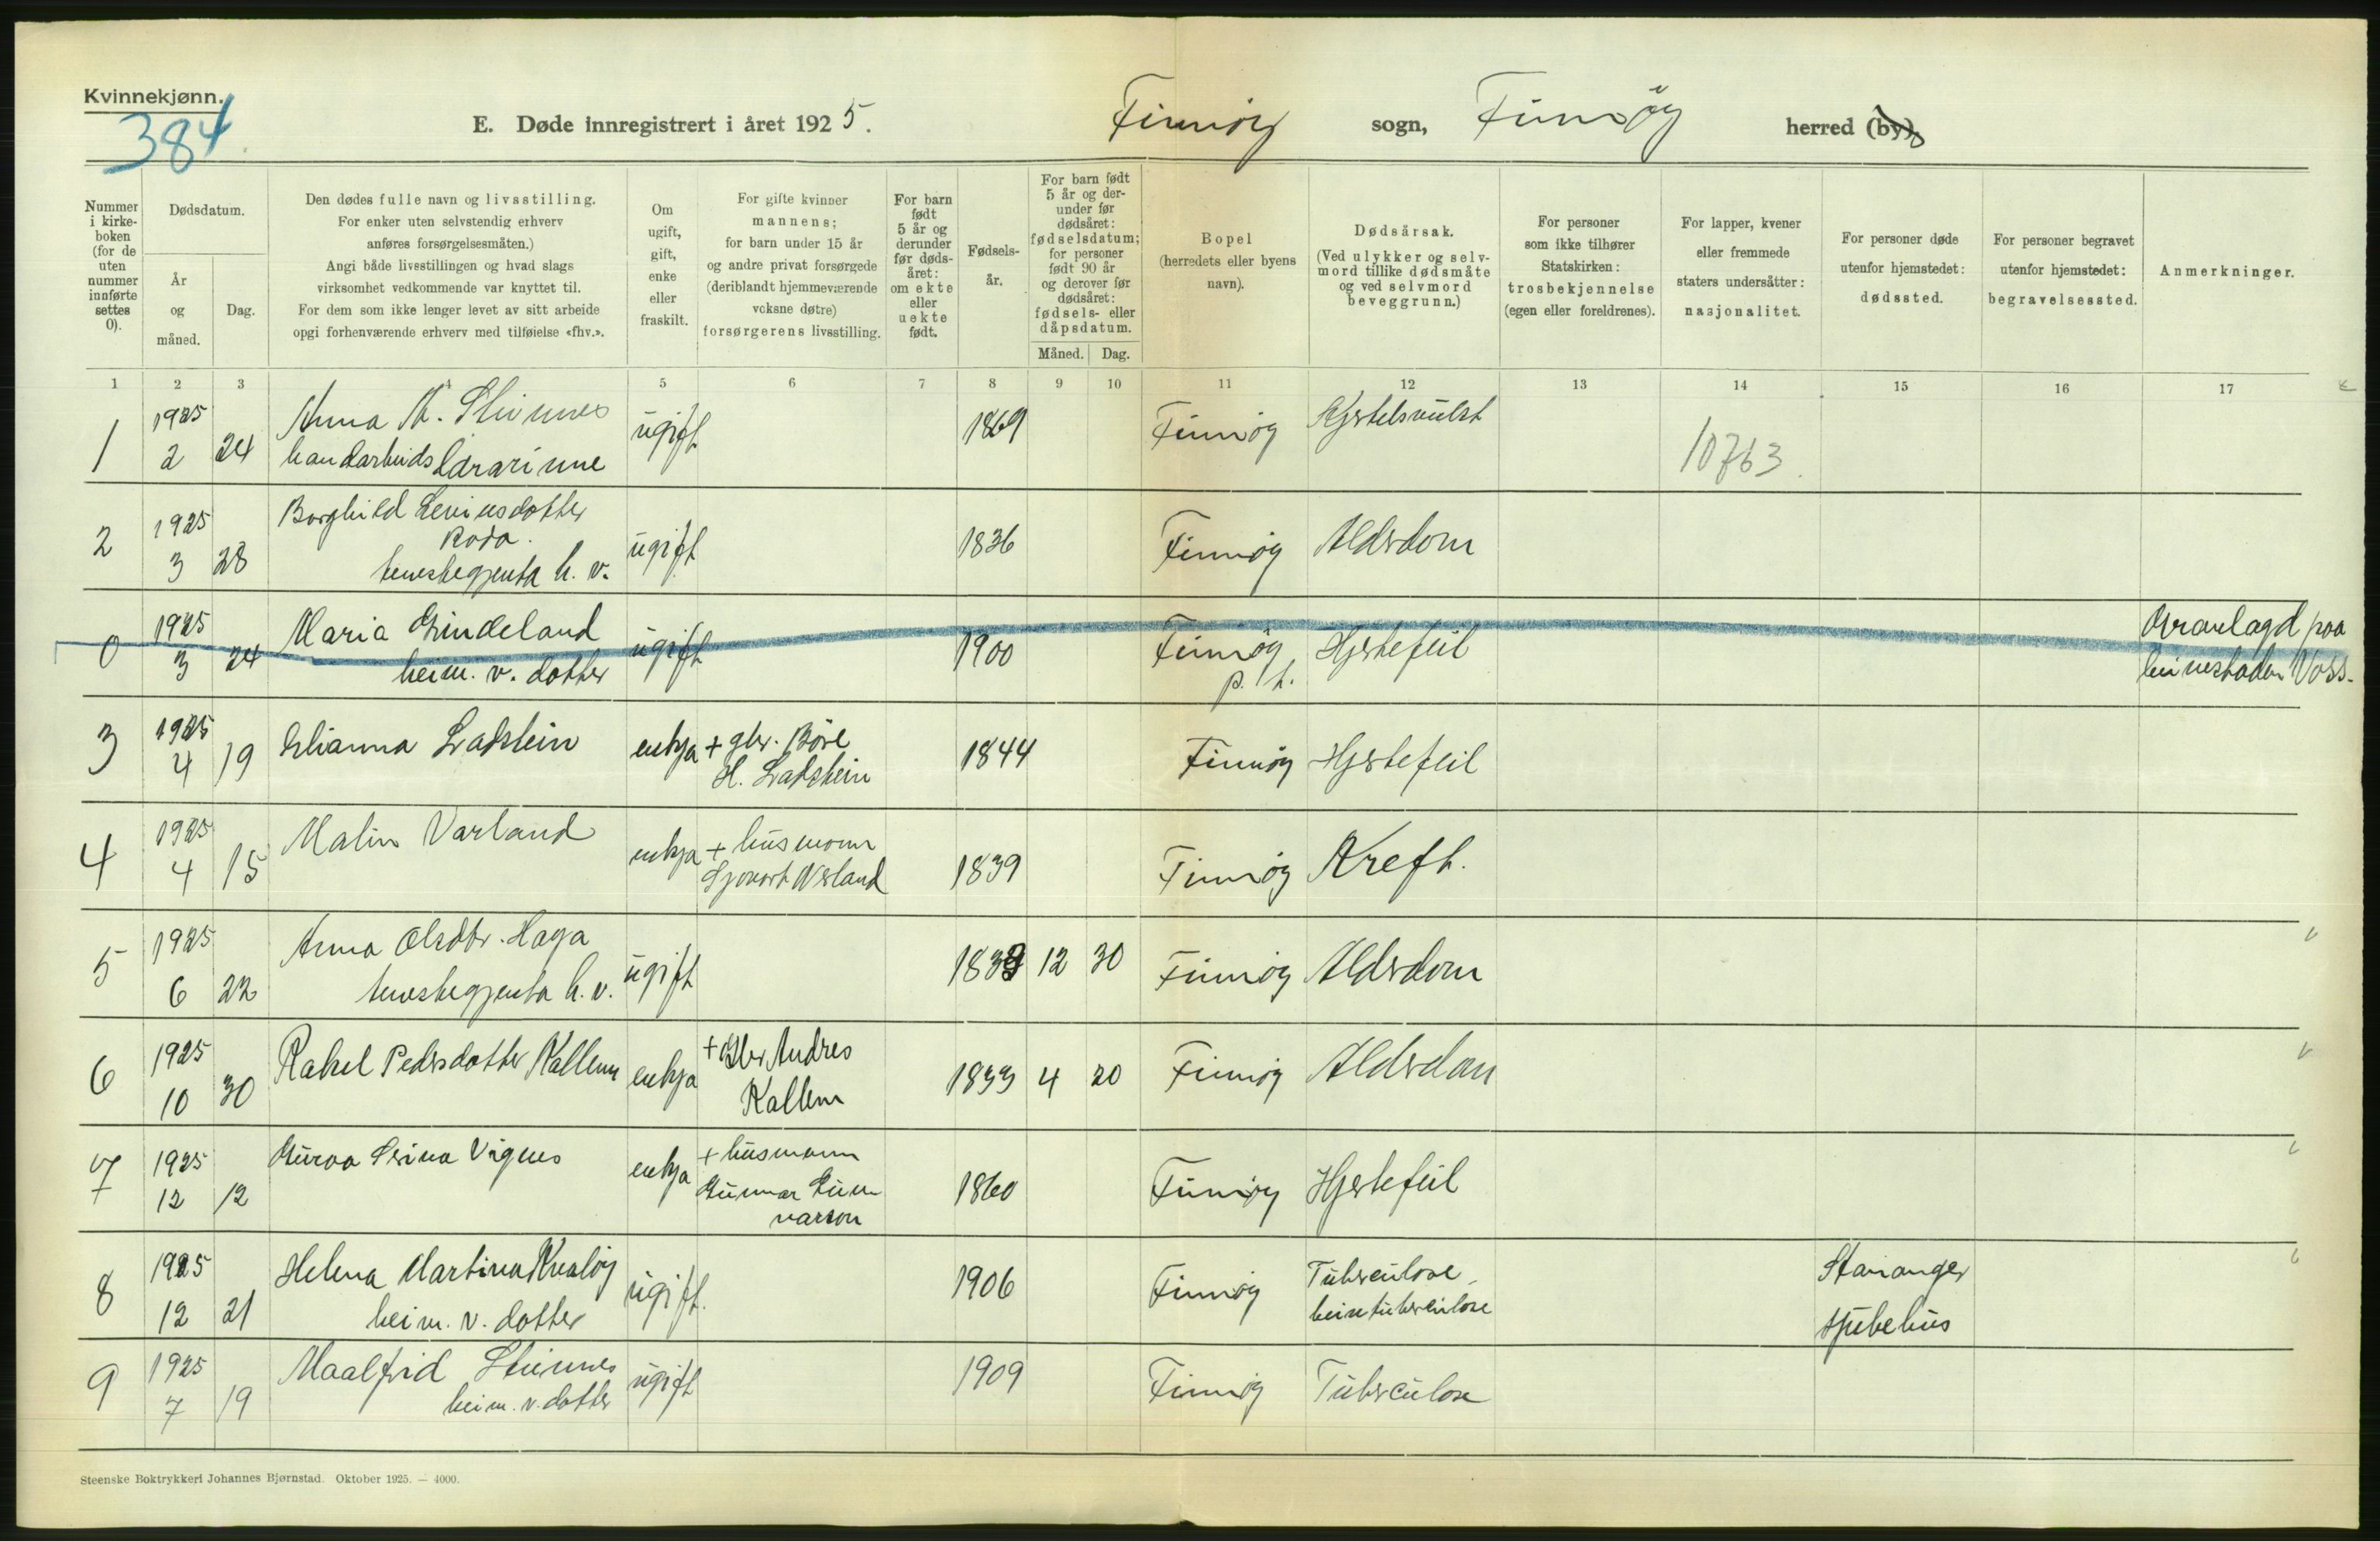 Kvinnekjønn.
384
E. Døde innregistrert i året 1925.
Finnøy sogn, Finnøy herred (by).
Nummer i kirkeboken (for de uten nummer innførte settes 0).
Dødsdatum.
År og måned.
Dag.
Den dødes fulle navn og livsstilling.
For enker uten selvstendig erhverv
anføres forsørgelsesmåten.)
Angi både livsstillingen og hvad slags
virksomhet vedkommende var knyttet til.
For dem som ikke lenger levet av sitt arbeide
opgi forhenværende erhverv med tilføielse «fhv.».
Om ugift, gift, enke eller fraskilt.
For gifte kvinner
mannens;
for barn under 15 år
og andre privat forsørgede
(deriblandt hjemmeværende
voksne døtre)
forsørgerens livsstilling.
For barn født 5 år og derunder før dødsåret: om ekte eller uekte født.
Fødselsår.
For barn født 5 år og derunder før dødsåret: fødselsdatum; for personer født 90 år og derover før dødsåret: fødsels- eller dåpsdatum.
Måned. Dag.
Bopel
(herredets eller byens
navn).
Dødsårsak.
(Ved ulykker og selvmord tillike dødsmåte og ved selvmord beveggrunn.)
For personer
som ikke tilhører
Statskirken:
trosbekjennelse
(egen eller foreldrenes).
For lapper, kvener
eller fremmede
staters undersåtter:
nasjonalitet.
For personer døde
utenfor hjemstedet:
dødssted.
For personer begravet
utenfor hjemstedet:
begravelsessted.
Anmerkninger.
1 2 3 4 5 6 7 8 9 10 11 12 13 14 15 16 17
1 1925 2 24 Anna M. Steinnes
handarbeidslärarinne
ugift 1869 Finnøy Kjertelsvulst
10763
2 1925 3 28 Borghild Leviusdotter
Roda.
tenestegjenta h. v.
ugift 1836 Finnøy Alderdom
0 1925 3 24 Maria Grindeland
heim. v. dotter
ugift 1900 Finnøy p. t. Hjertefeil
heimestaden Voss.
3 1925 4 19 Elianna Ladstein
enkja + gbr. Børe
H. Ladstein
1844 Finnøy Hjertefeil
4 1925 4 15 Malin Varland
enkja + husmann
1839 Finnøy Kreft.
5 1925 6 22 Anna Olsdtr. Haga
tenestegjenta h. v.
ugift 1833 12 30 Finnøy Alderdom
6 1925 10 30 Rakel Pedersdotter Kallem
enkja + Gbr. Andres
Kallem
1833 4 20 Finnøy Alderdom
7 1925 12 12 Guroa Serina Vignes
enkja + husmann
Gunnar Gunnarson
1860 Finnøy Hjertefeil
8 1925 12 21 Helena Martina Kvaløy
heim. v. dotter
ugift. 1906 Finnøy Tuberculose,
beintuberculose
Stavanger
sjukehus
9 1925 7 19 Maalfrid Steinnes
heim. v. dotter
ugift 1909 Finnøy Tuberculose
Steenske Boktrykkeri Johannes Bjørnstad. Oktober 1925. — 4000.